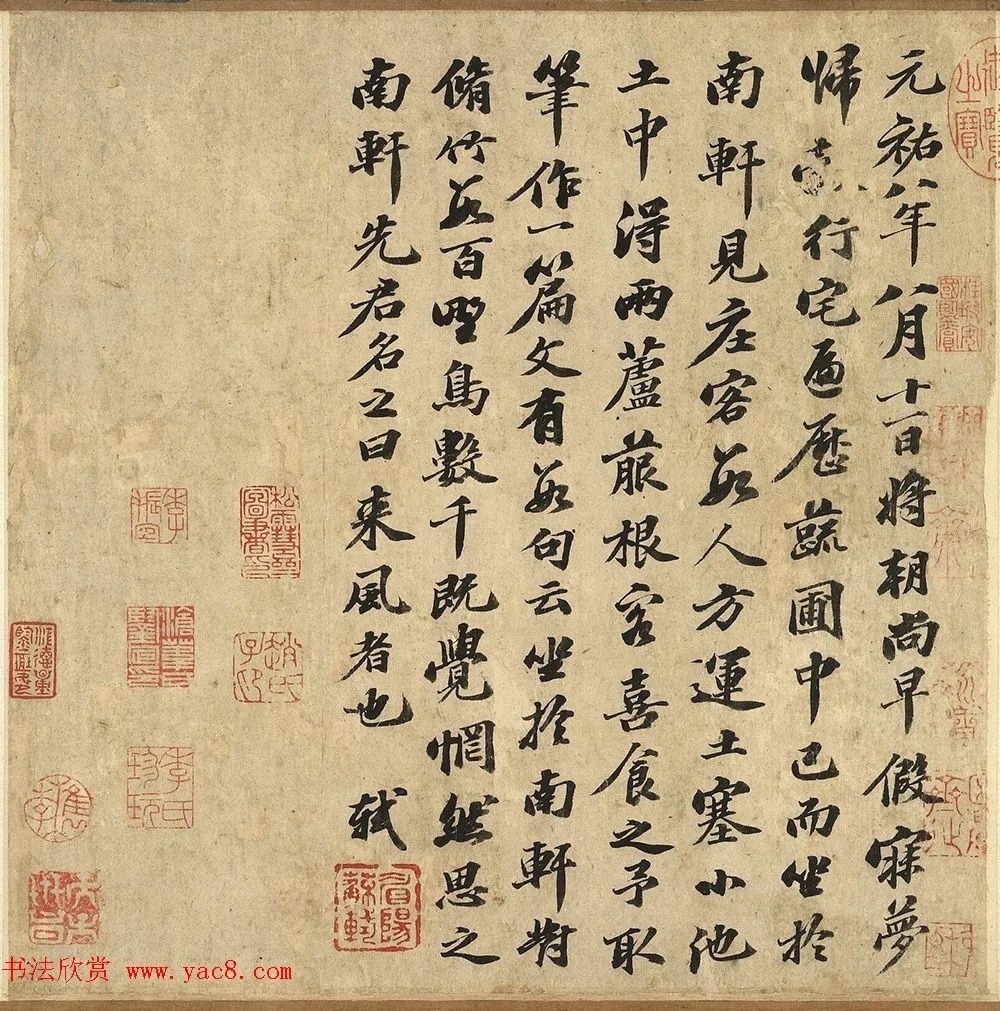 元祐八年八月十一日將朝尚早假寐夢
歸行宅遍歷蔬圃中已而坐於
南軒見庄客數人方運土塞小池
土中得兩蘆菔根客喜食之予取
筆作一篇文有數句云坐於南軒對
脩竹數百野鳥數千既覺惘然思之
南軒先君名之曰来風者也 軾
眉陽蘇軾
松雪齋圖書印
书法欣赏 www.yac8.com